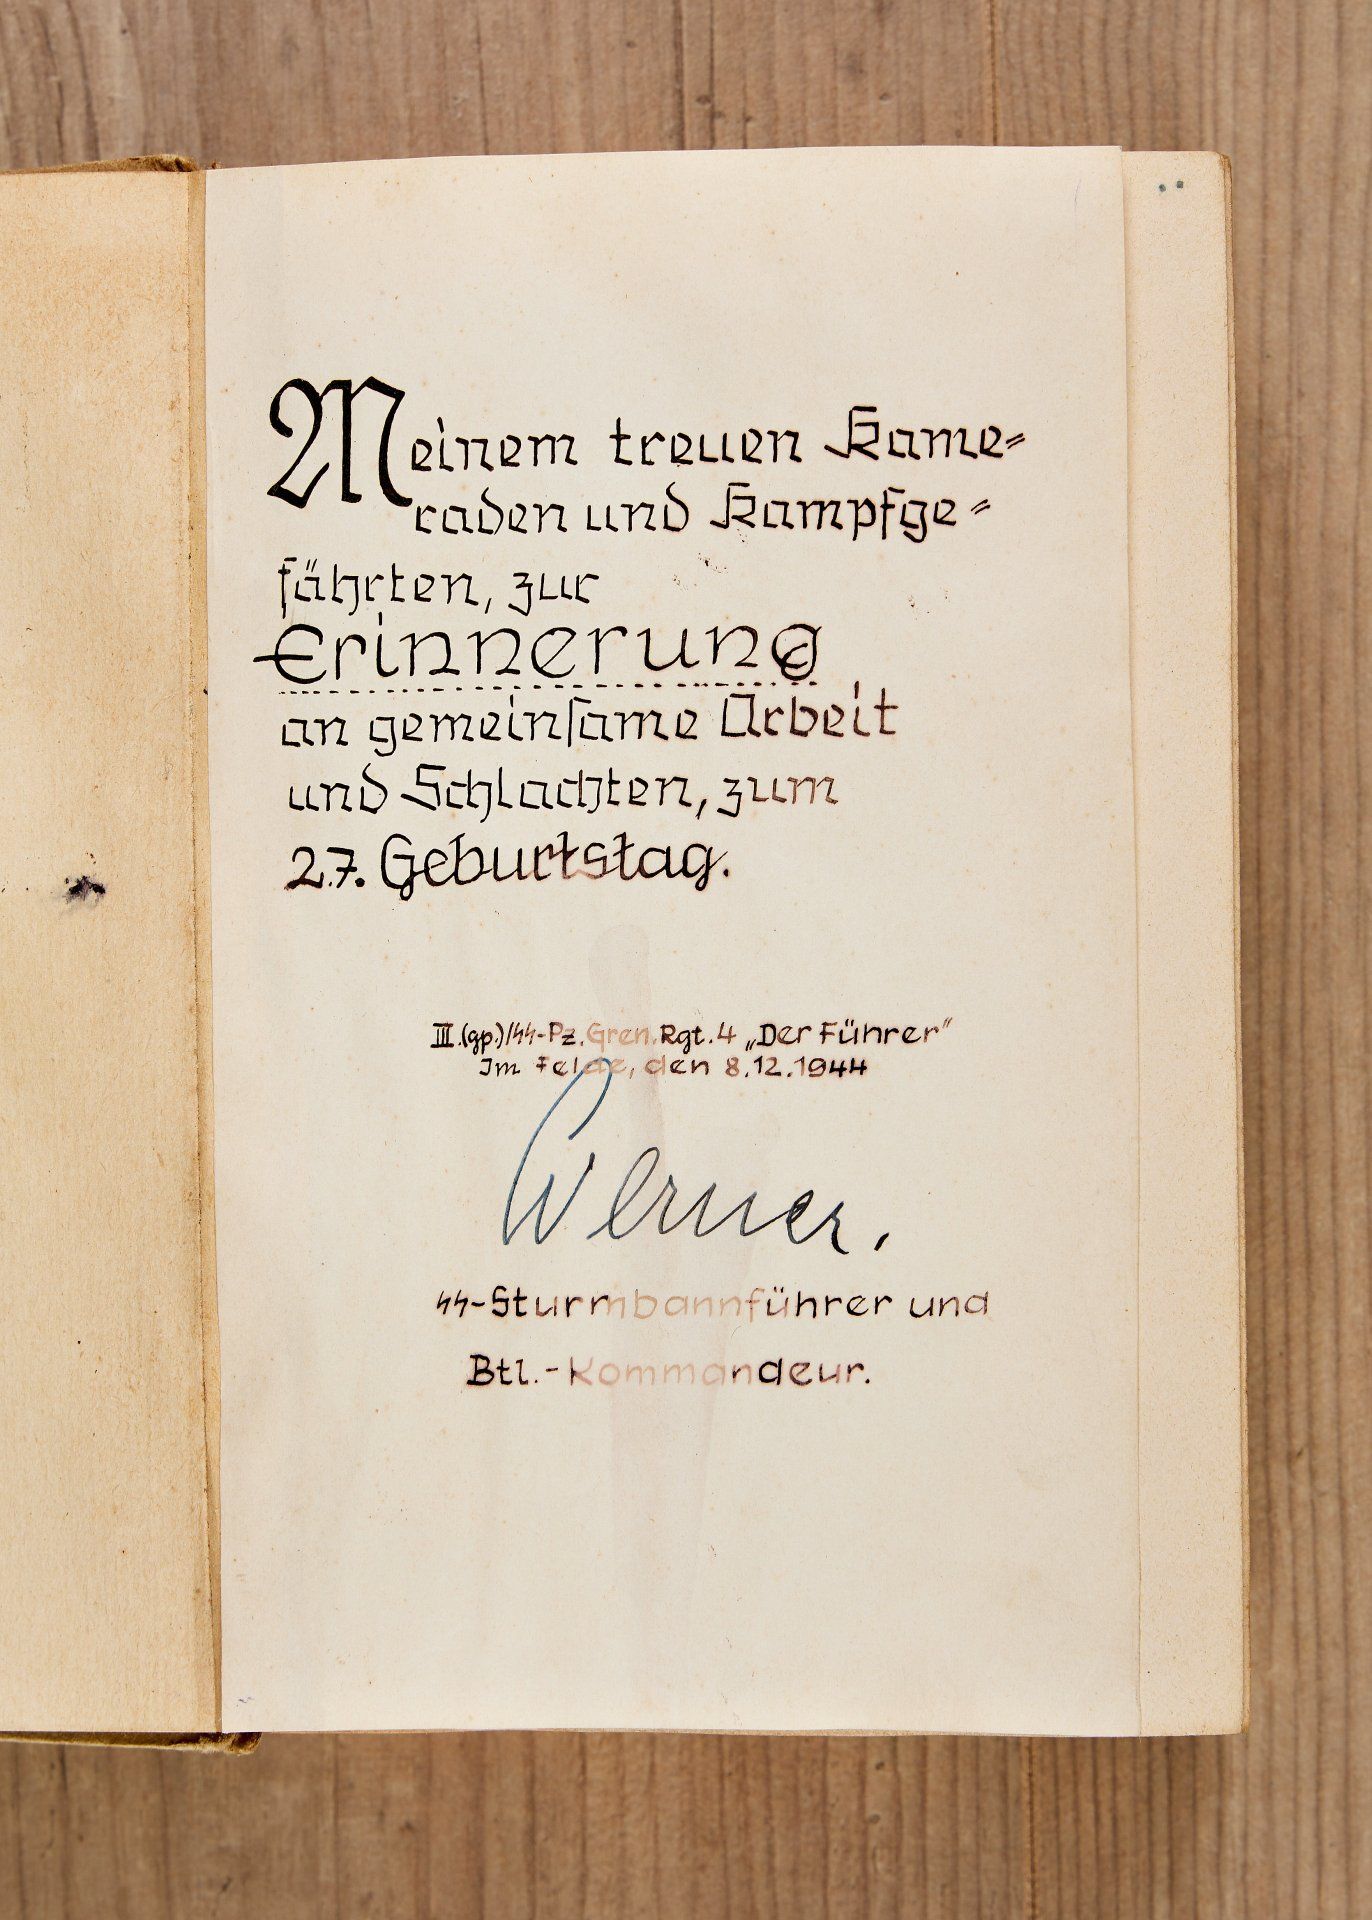 Meinem treuen Kame=
raden und Kampfge=
fährten, zur
Erinnerung
an gemeinsame Arbeit
und Schlachten, zum
27. Geburtstag.
III.(gp.)/SS-Pz.Gren.Rgt.4 „Der Führer"
Im Felde, den 8.12.1944
Werner.
SS-Sturmbannführer und
Btl.-Kommandeur.